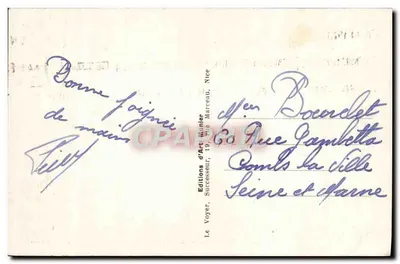 Bonne poignée
de main
Editions d'Art Munier
Le Voyer, Successeur, 19, Rue Marceau, Nice
Bourdet
60 Rue Gambetta
Combs la Ville
Seine et Marne
CPARAMA